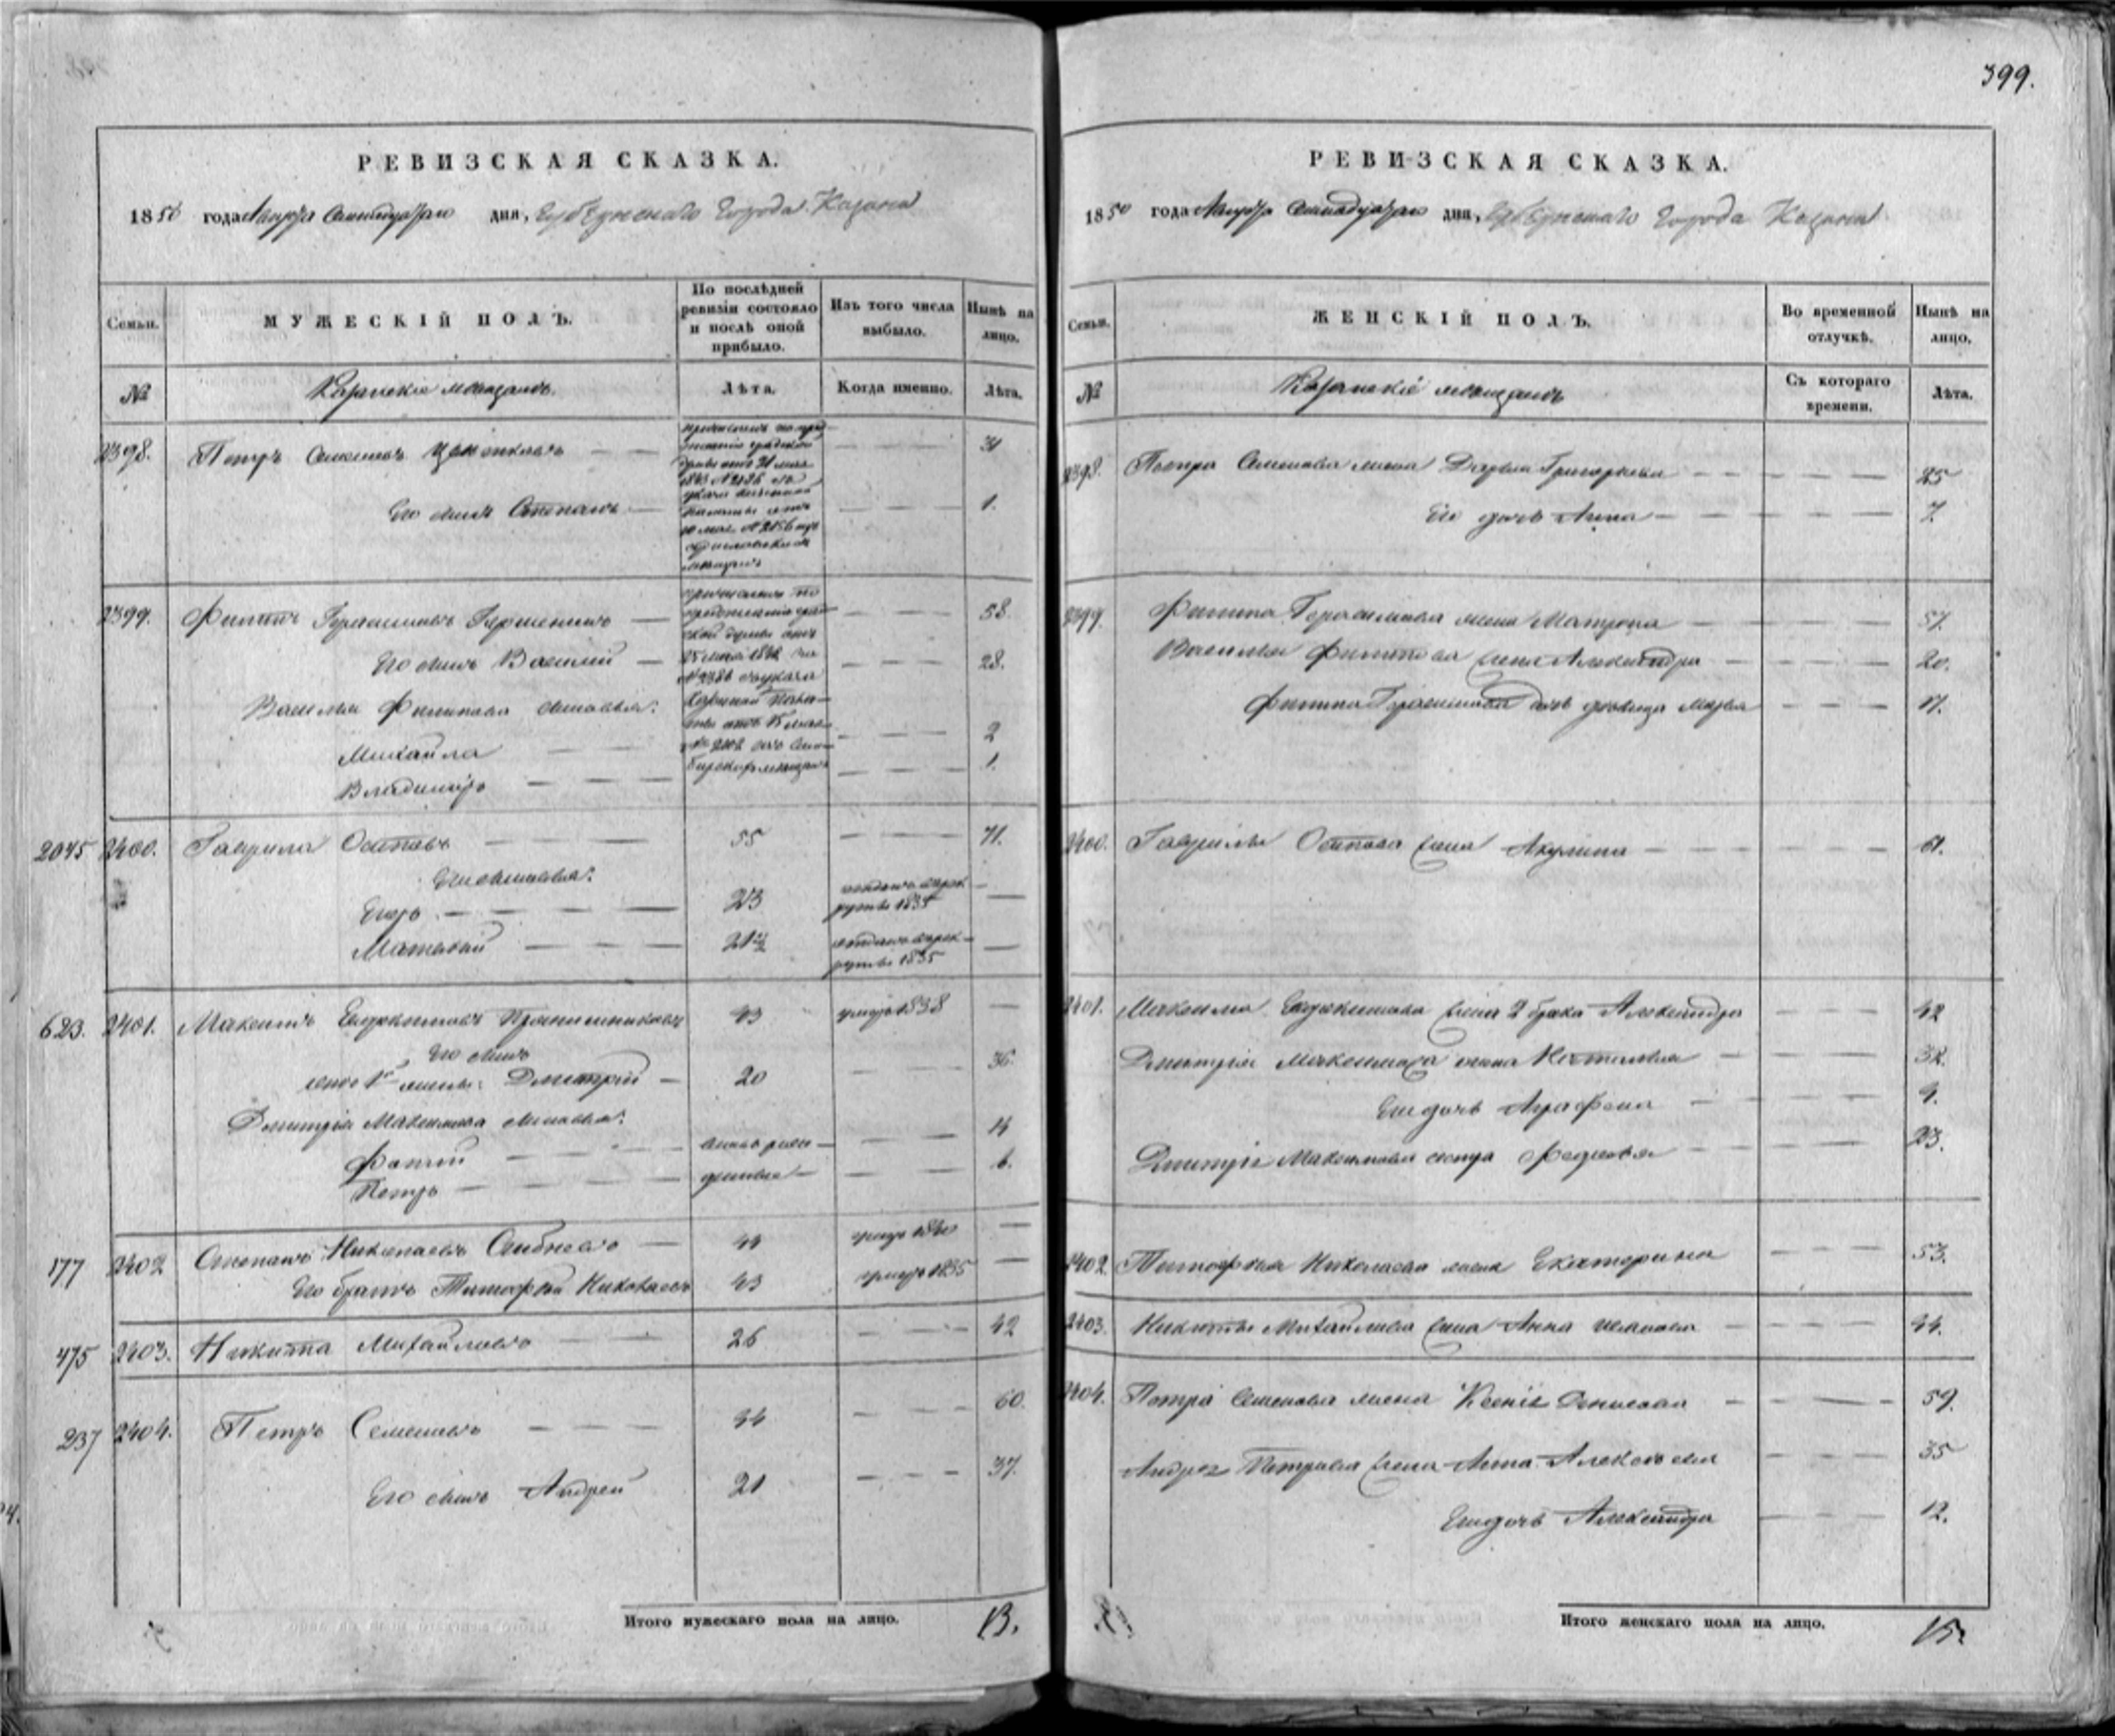 399.
РЕВИЗСКАЯ СКАЗКА.
1850 года Марта Семнадцатаго дня, Губернскаго Города Казани
Семьи.
МУЖЕСКІЙ ПОЛЪ.
По послѣдней ревизіи состояло и послѣ оной прибыло.
Изъ того числа выбыло.
Нынѣ на лицо.
№
Казанскіе мѣщане
Лѣта.
Когда именно.
Лѣта.
2398. Петръ Семеновъ 31
Его сынъ Степанъ 1.
2399. Филипъ Герасимовъ 58.
Его сынъ Василий 28.
Василья Филипова сыновья:
Михайла 2
Владимиръ 1.
2045 2400. Гаврила Осиповъ 55 71.
Его сыновья:
Егоръ 23 отданъ в рекруты 1835
Матвѣй 21½ отданъ в рекруты 1835
623. 2401. Максимъ Евдокимовъ 43 умеръ 1838
Его сынъ
отъ 1й жены: Дмитрій 20 36.
Дмитрія Максимова сыновья:
Фотій вновь рож- 14
Петръ денные 6.
177 2402 Степанъ Николаевъ 44 умеръ 1840
Его братъ Тимофей Николаевъ 43 умеръ 1835
475 2403. Никита Михайловъ 26 42
237 2404. Петръ Семеновъ 44 60.
Его сынъ Андрей 21 37.
Итого мужескаго пола на лицо. 13.
РЕВИЗСКАЯ СКАЗКА.
1850 года Марта Семнадцатаго дня, Губернскаго Города Казани
Семьи.
ЖЕНСКІЙ ПОЛЪ.
Во временной отлучкѣ.
Нынѣ на лицо.
№
Казанскіе мѣщане
Съ котораго времени.
Лѣта.
2398. Петра Семенова жена Дарья Григорьева 25
Его дочь Анна 7.
2399. Филипа Герасимова жена Матрона 57.
Василья Филипова жена Александра 20.
Филипа Герасимова дочь девица Марья 17.
2400. Гаврилы Осипова жена Акулина 61.
2401. Максима Евдокимова жена 2 брака Александра 42
Дмитрія Максимова жена Наталья 32.
Его дочь Аграфена 9.
Дмитрія Максимова сестра Федосья 23.
2402. Тимофея Николаева жена Екатерина 53.
2403. Никиты Михайлова жена Анна Иванова 44.
2404. Петра Семенова жена Ксенія Денисова 59.
Андрея Петрова жена Анна Алексѣева 35
Его дочь Александра 12.
Итого женскаго пола на лицо. 15.